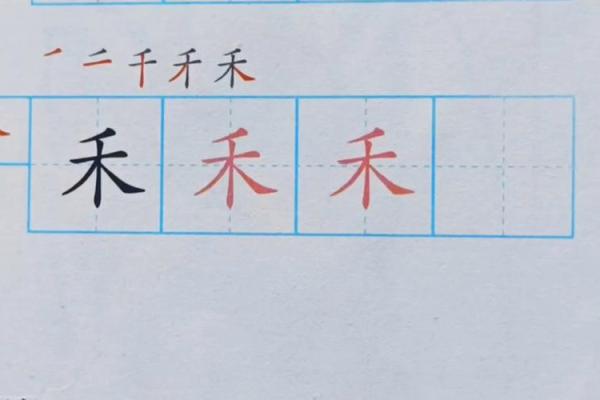 ㇒ 二 千 禾 禾
禾 禾 禾